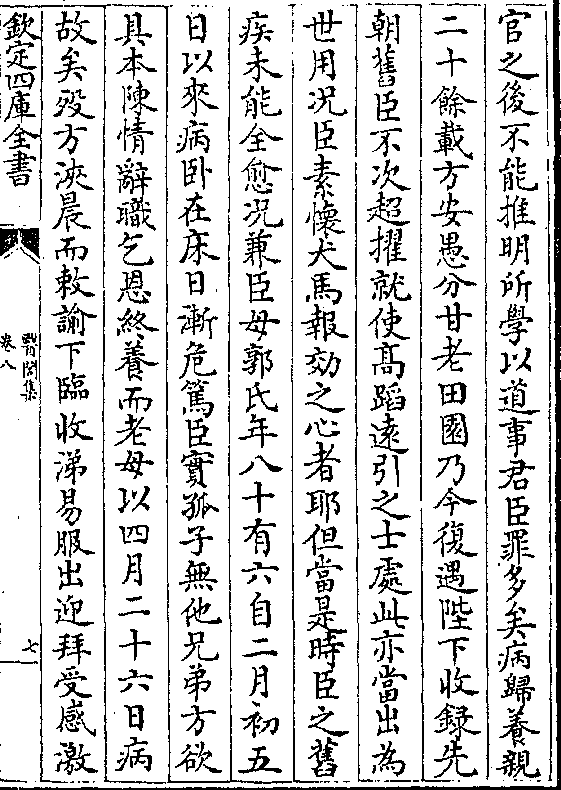 官之後不能推明所學以道事君臣罪多矣病歸養親
二十餘載方安愚分甘老田園乃今復遇陛下收録先
朝舊臣不次超擢就使髙蹈遠引之士處此亦當出為
世用况臣素懷犬馬報効之心者耶但當是時臣之舊
疾未能全愈况兼臣母郭氏年八十有六自二月初五
日以來病卧在床日漸危篤臣實孤子無他兄弟方欲
具本陳情辭職乞恩終養而老母以四月二十六日病
故矣殁方浹晨而敕諭下臨收涕易服出迎拜受感激
欽定四庫全書
醫閭集
卷八
七